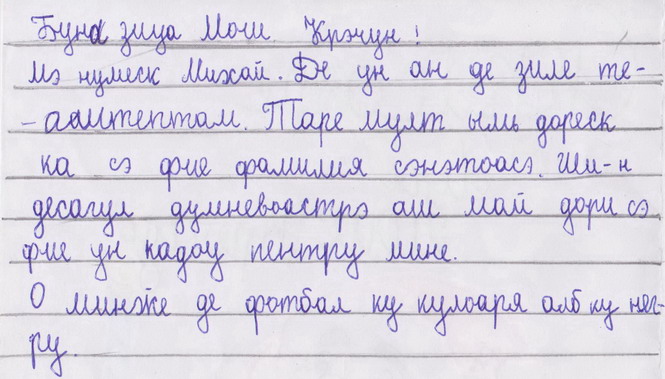 Буна зиуа Мош Крэчун!
Мэ нумеск Михай. Де ун ан де зиле те-
-аштептам. Таре мулт ымь дореск
ка сэ фие фамилия сэнэтоасэ. Ши-н
десагул думневоастрэ аш май дори сэ
фие ун кадоу пентру мине.
О минже де фотбал ку кулоаря алб ку нег-
ру.